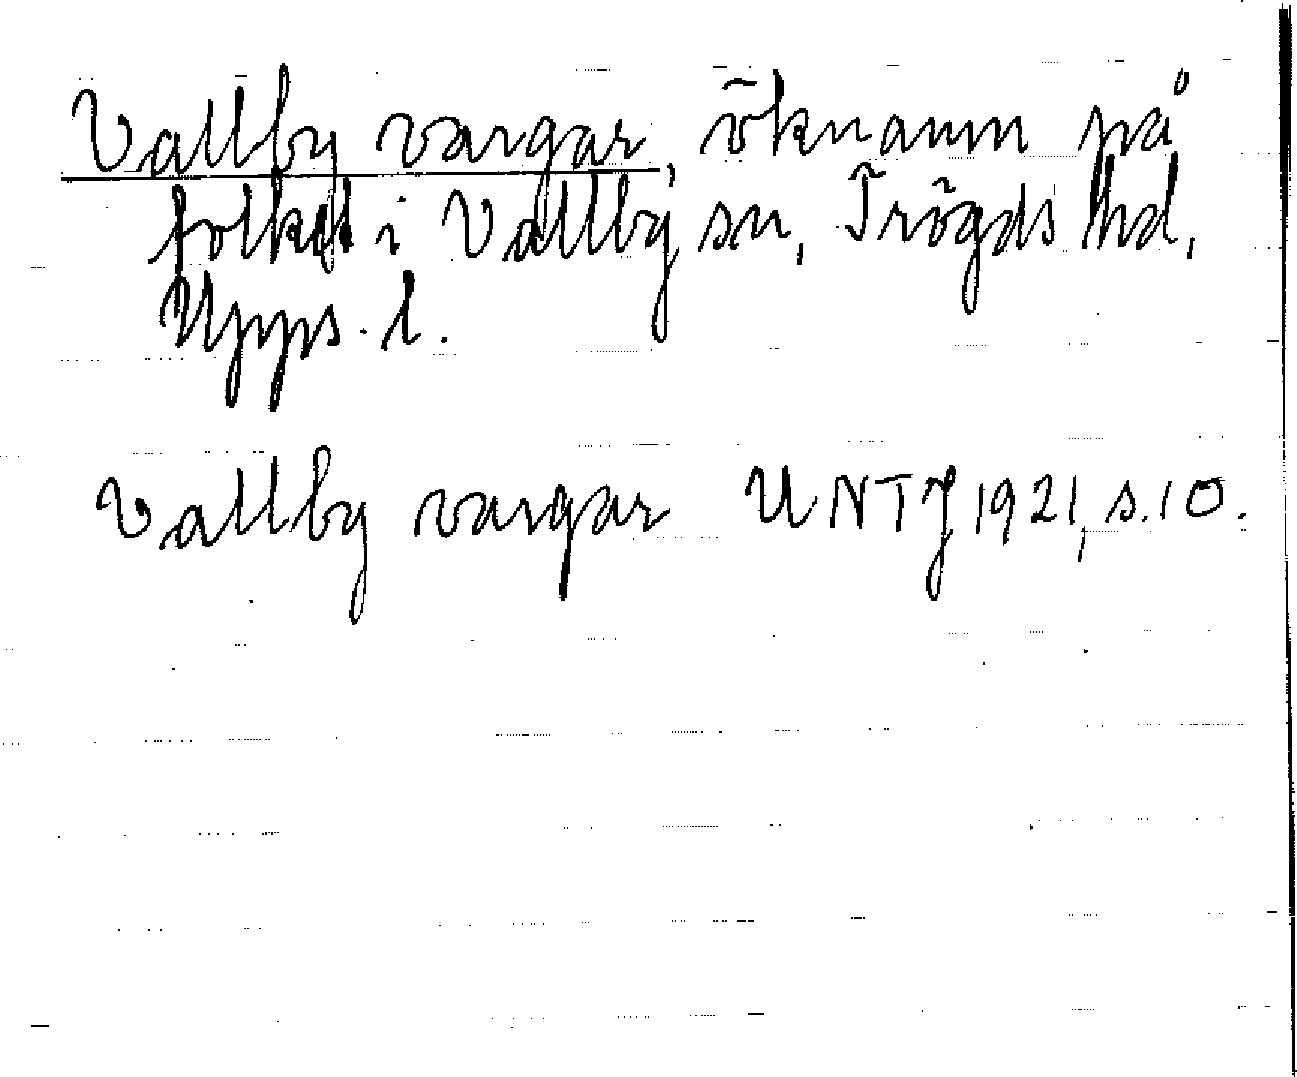 Vallby vargar, öknamn på
folket i Vallby sn, Trögds hd,
Upps. l.
Vallby vargar UNTJ 1921, s. 10.